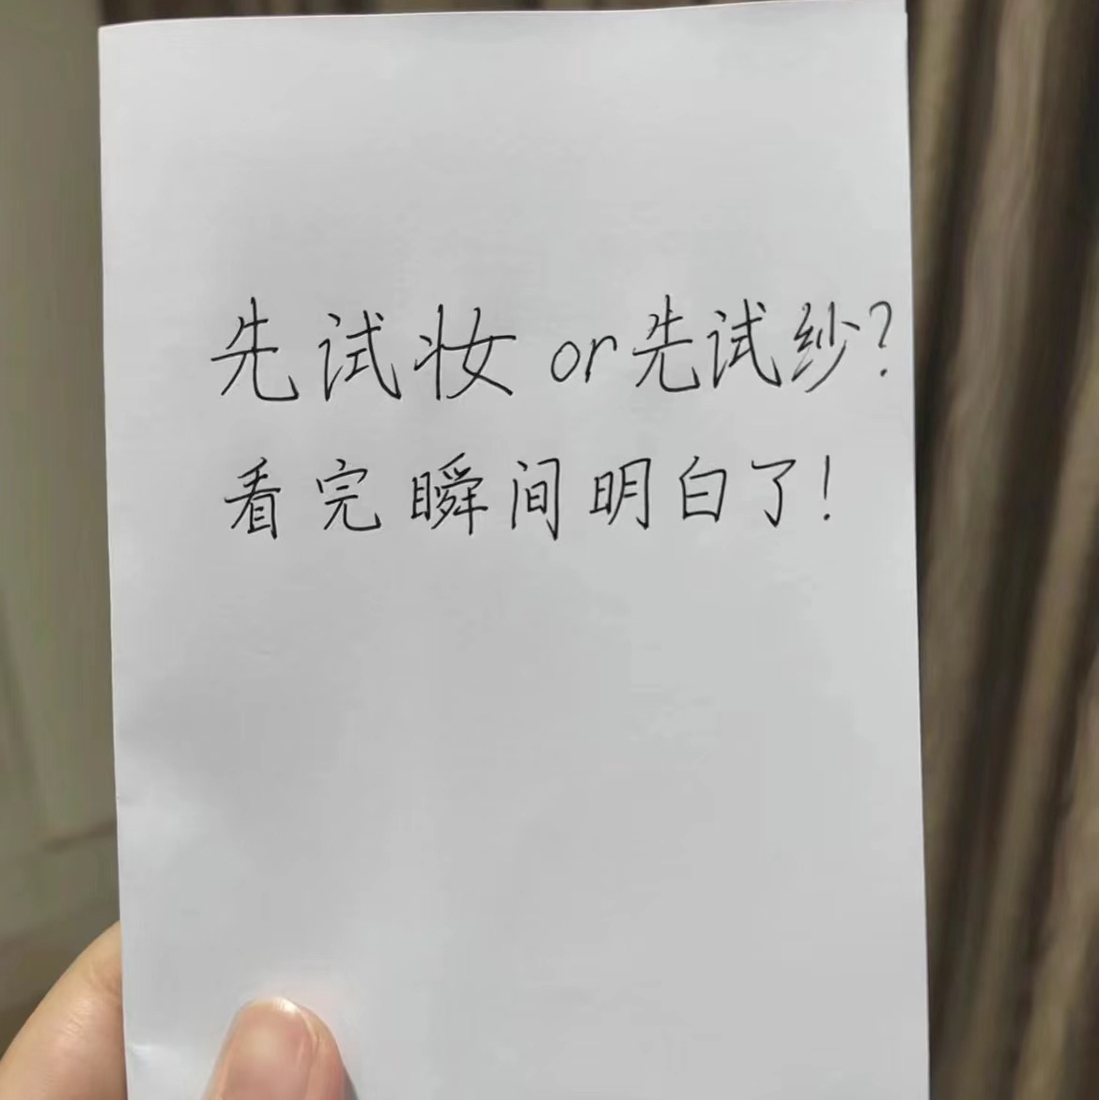 先试妆 or 先试纱?
看完瞬间明白了!